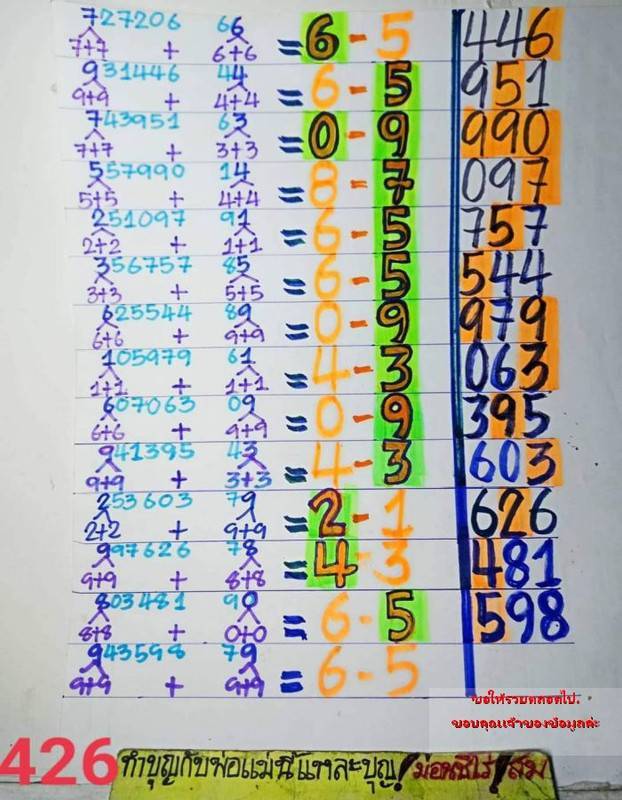 727206 66 = 6 - 5 446
7+7 + 6+6
931446 44 = 6 - 5 951
9+9 + 4+4
743951 63 = 0 - 9 990
7+7 + 3+3
557990 14 = 8 - 7 097
5+5 + 4+4
251097 91 = 6 - 5 757
2+2 + 1+1
356757 85 = 6 - 5 544
3+3 + 5+5
625544 89 = 0 - 9 979
6+6 + 9+9
105979 61 = 4 - 3 063
1+1 + 1+1
607063 09 = 0 - 9 395
6+6 + 9+9
941395 43 = 4 - 3 603
9+9 + 3+3
253603 79 = 2 - 1 626
2+2 + 9+9
997626 78 = 4 - 3 481
9+9 + 8+8
803481 90 = 6 - 5 598
8+8 + 0+0
943598 79 = 6 - 5
9+9 + 9+9
ขอให้รวยตลอดไป.
ขอบคุณเจ้าของข้อมูลค่ะ
426 ทำบุญกับพ่อแม่นี่แหละบุญ/